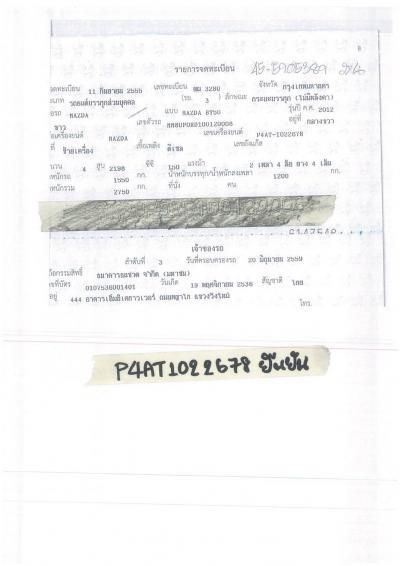 8
รายการจดทะเบียน
จดทะเบียน 11 กันยายน 2555 เลขทะเบียน ฒฒ 3280 จังหวัด กรุงเทพมหานคร
รถยนต์บรรทุกส่วนบุคคล (รย. 3 ) ลักษณะ กระบะบรรทุก (ไม่มีหลังคา)
MAZDA แบบ MAZDA BT50 รุ่นปี ค.ศ. 2012
ขาว เลขตัวรถ อยู่ที่ กลางขวา
เครื่องยนต์ MAZDA เลขเครื่องยนต์ P4AT-1022678
ที่ ซ้ายเครื่อง เชื้อเพลิง ดีเซล เลขถังแก๊ส
นวน 4 สูบ 2198 ซีซี 150 แรงม้า 2 เพลา 4 ล้อ ยาง 4 เส้น
หนักรถ 1550 กก. น้ำหนักบรรทุก/น้ำหนักลงเพลา 1200 กก.
หนักรวม 2750 กก. ที่นั่ง คน
เจ้าของรถ
ลำดับที่ 3 วันที่ครอบครองรถ 20 มิถุนายน 2559
กรรมสิทธิ์ ธนาคารธนชาต จำกัด (มหาชน)
ที่บัตร 0107536001401 วันเกิด 19 พฤศจิกายน 2536 สัญชาติ ไทย
อยู่ 444 อาคารเอ็มบีเคทาวเวอร์ ถนนพญาไท แขวงวังใหม่
โทร.
P4AT1022678 ยืนยัน